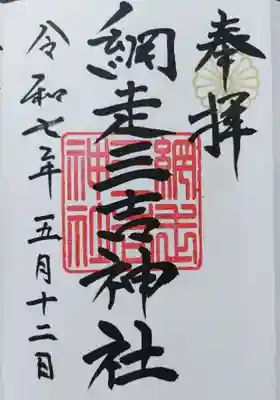 奉拝
網走三吉神社
令和七年五月十二日
網走三吉神社